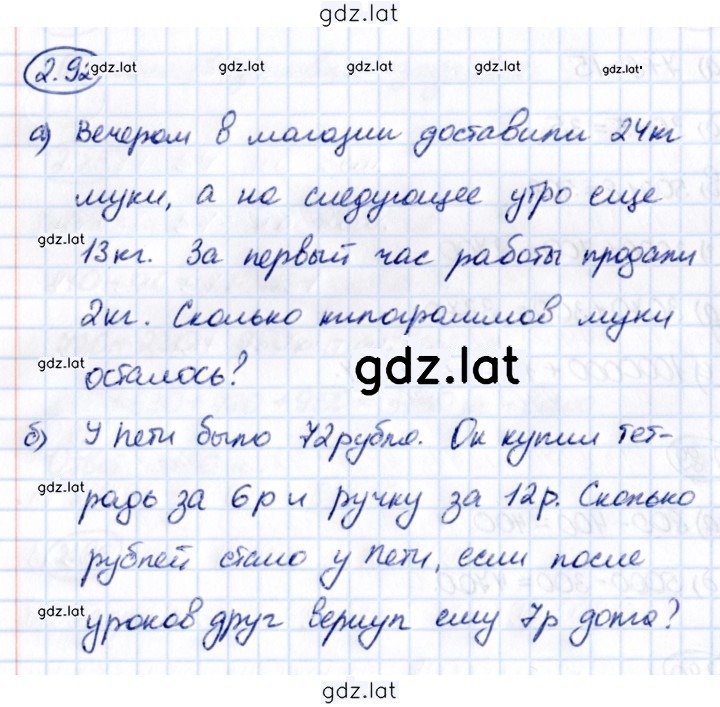 gdz.lat
2.92 gdz.lat gdz.lat gdz.lat gdz.lat
а) Вечером в магазин доставили 24кг
муки, а на следующее утро еще
gdz.lat 13кг. За первый час работы продали
2кг. Сколько килограммов муки
gdz.lat осталось? gdz.lat
б) У Пети было 72рубля. Он купил тет-
gdz.lat радь за 6р и ручку за 12р. Сколько
рублей стало у Пети, если после
gdz.lat уроков друг вернул ему 7р долга?
gdz.lat